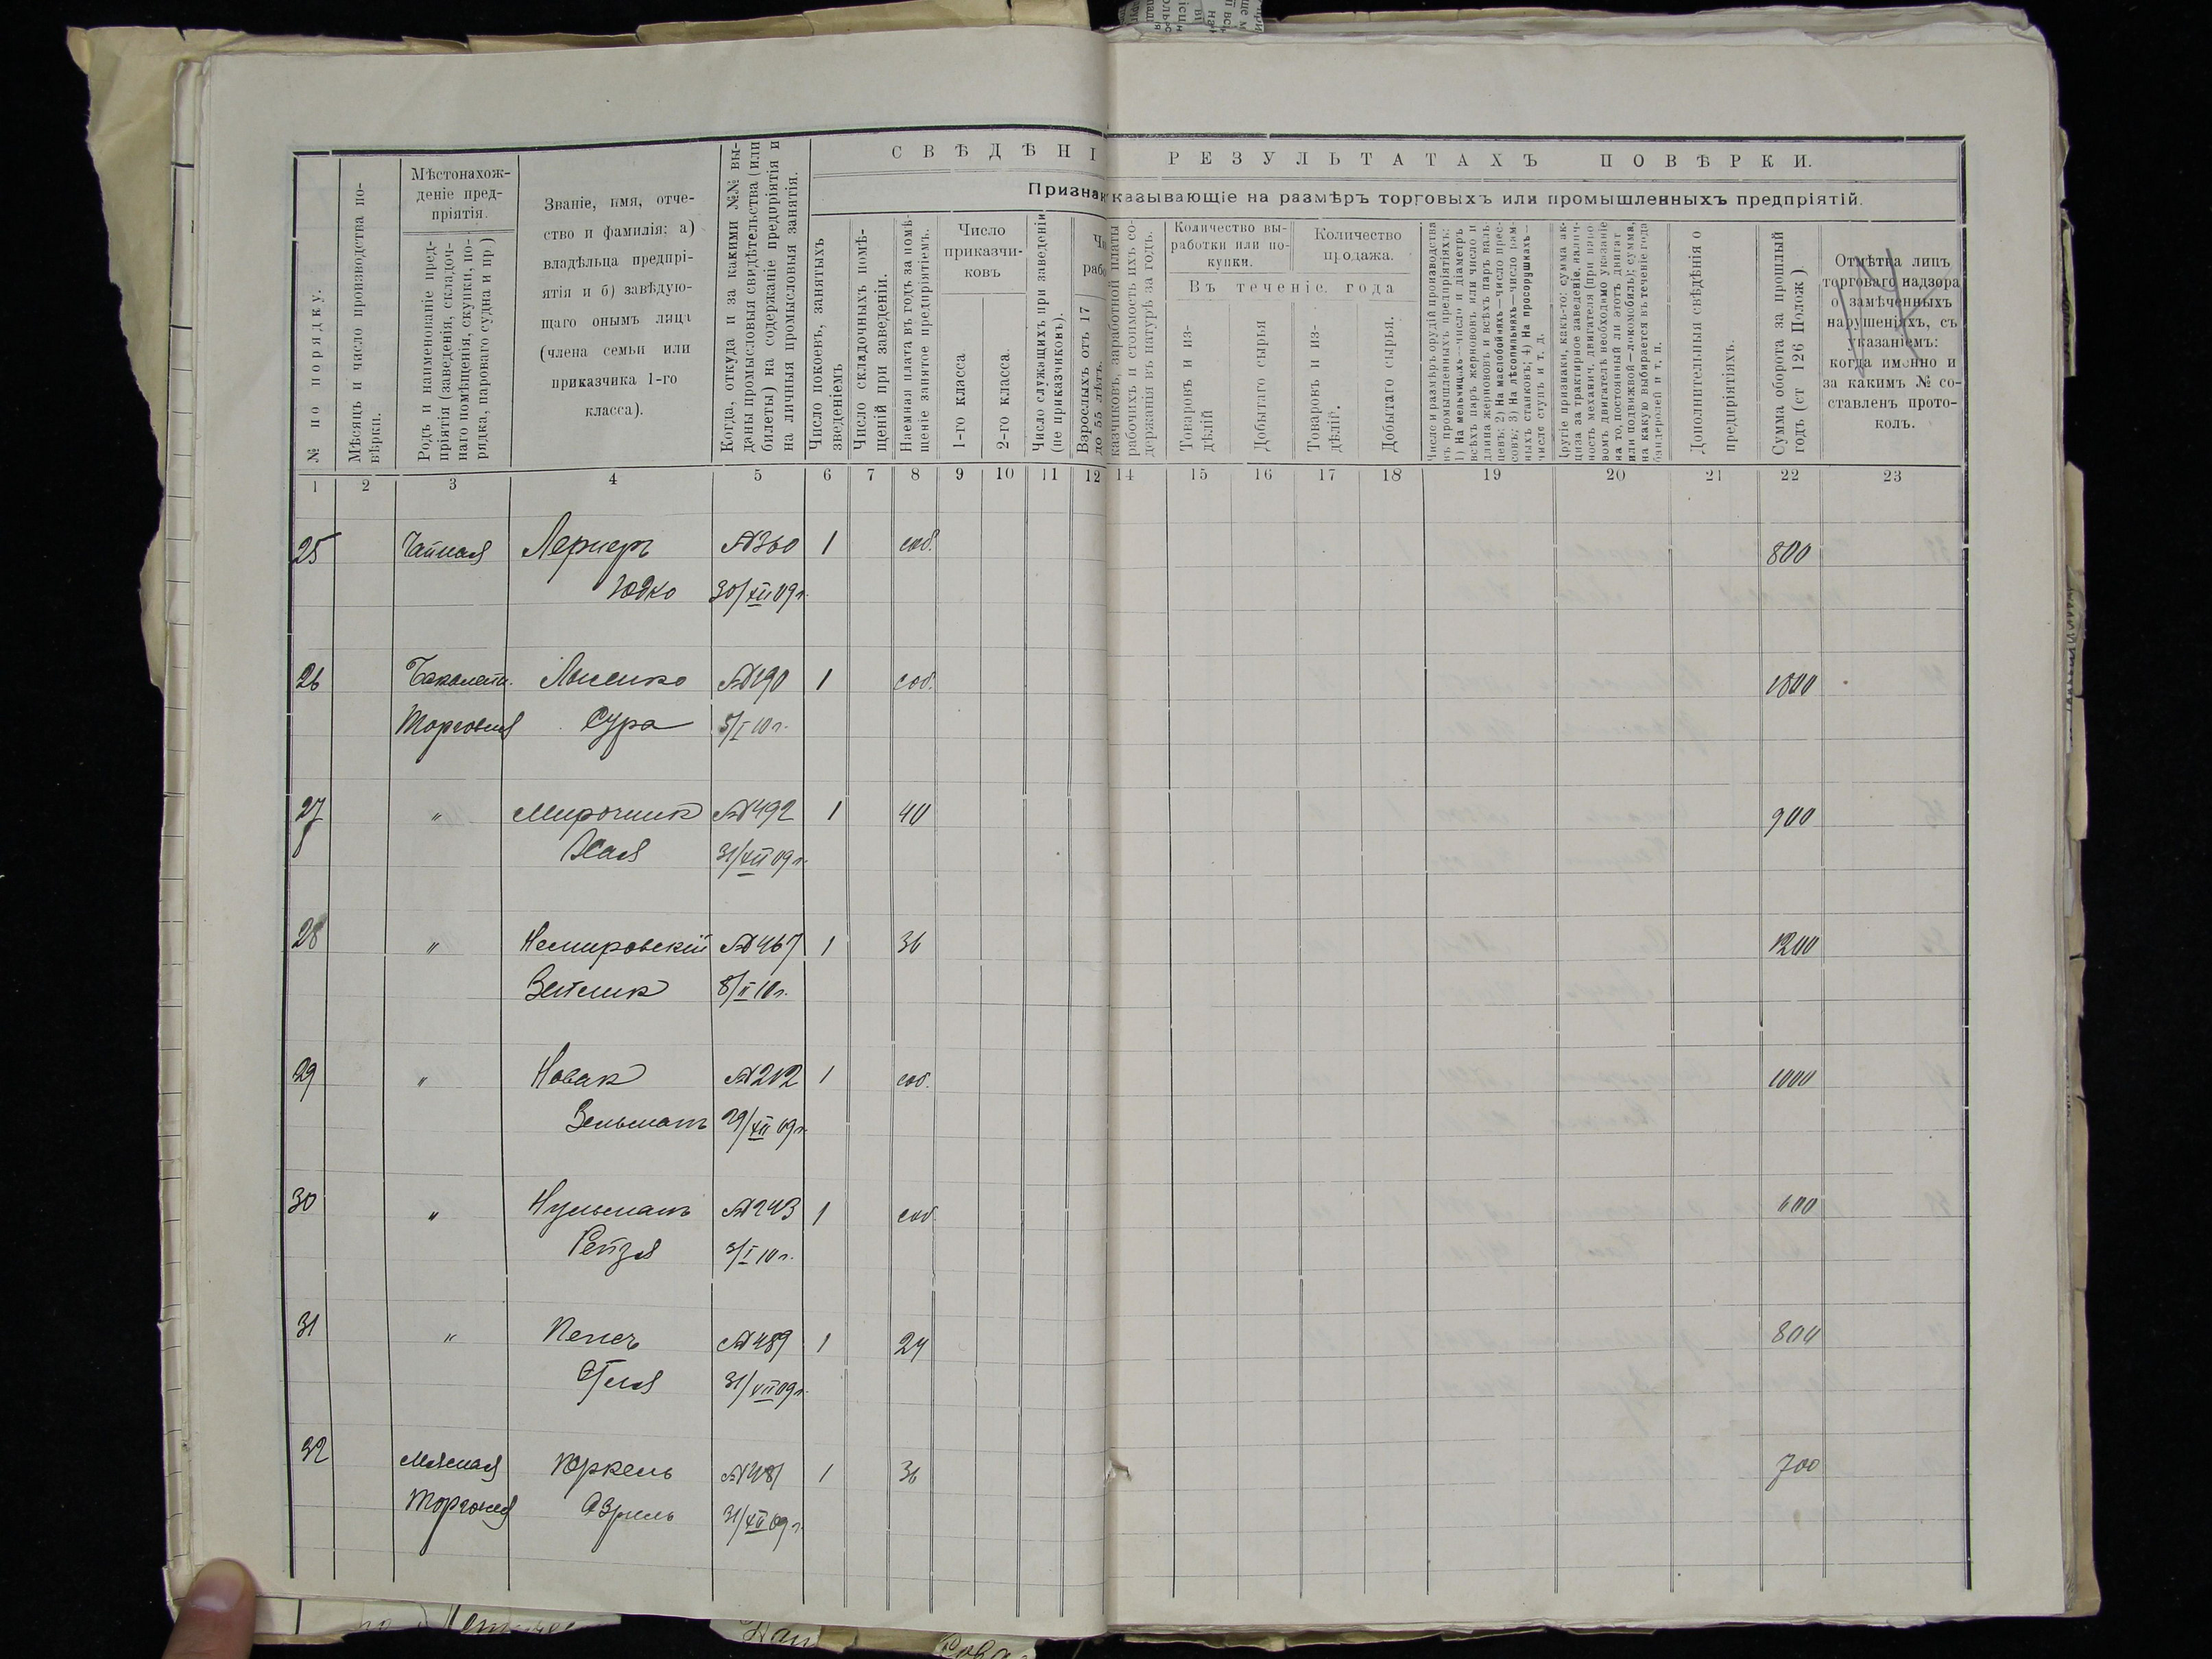 СВѢДѢНІ
РЕЗУЛЬТАТАХЪ ПОВѢРКИ.
Признак
казывающіе на размѣръ торговыхъ или промышленныхъ предпріятій.
№ по порядку.
Мѣсяцъ и число производства по-
вѣрки.
Мѣстонахож-
деніе пред-
пріятія.
Родъ и наименованіе пред-
пріятія (заведенія, складоч-
наго помѣщенія, скупки, по-
рядка, пароваго судна и пр.)
Званіе, имя, отче-
ство и фамилія: а)
владѣльца предпрі-
ятія и б) завѣдую-
щаго онымъ лица
(члена семьи или
приказчика 1-го
класса).
Когда, откуда и за какими №№ вы-
даны промысловыя свидѣтельства (или
билеты) на содержаніе предпріятія и
на личныя промысловыя занятія.
Число покоевъ, занятыхъ
зведеніемъ
Число складочныхъ помѣ-
щеній при заведеніи.
Наемная плата въ годъ за помѣ-
щеніе занятое предпріятіемъ.
Число
приказчи-
ковъ
1-го класса.
2-го класса.
Число служащихъ при заведеніи
(не приказчиковъ).
Взрослыхъ отъ 17
до 55 лѣтъ.
казчиковъ, заработной платы
рабочихъ и стоимость ихъ со-
держанія въ натурѣ за годъ.
Количество вы-
работки или по-
купки.
Количество
продажа.
Въ теченіе года
Товаровъ и из-
дѣлій
Добытаго сырья
Товаровъ и из-
дѣлій.
Добытаго сырья.
Число и размѣръ орудій производства
въ промышленныхъ предпріятіяхъ:
1) На мельницахъ—число и діаметръ
всѣхъ паръ жернововъ или число и
длина жернововъ и всѣхъ паръ валь-
цевъ; 2) На маслобойняхъ—число прес-
совъ; 3) На лѣсопильняхъ—число рам-
ныхъ станковъ; 4) На просорушкахъ—
число ступъ и т. д.
Другіе признаки, какъ-то: сумма ак-
циза за трактирное заведеніе, налич-
ность механич. двигателя (при паро-
вомъ двигателѣ необходимо указаніе
на то, постоянный ли этотъ двигат
или подвижной—локомобиль); сумма,
на какую выбирается въ теченіе года
бандеролей и т. п.
Дополнительныя свѣдѣнія о
предпріятіяхъ.
Сумма оборота за прошлый
годъ (ст 126 Полож.)
Отмѣтка лицъ
торговаго надзора
о замѣченныхъ
нарушеніяхъ, съ
указаніемъ:
когда именно и
за какимъ № со-
ставленъ прото-
колъ.
1 2 3 4 5 6 7 8 9 10 11 12 14 15 16 17 18 19 20 21 22 23
25 Чайная Лернеръ №360 1 соб. 800
Юдко 30/XII 09 г.
26 Бакалейн. Лысенко №290 1 соб. 1000
Торговля Сура 5/I 10 г.
27 " Мирочник №492 1 40 900
Хая 31/XII 09 г.
28 " Немировскій №467 1 36 1200
Зейлик 8/II 10 г.
29 " Новак №212 1 соб. 1000
Зельманъ 29/XII 09 г.
30 " Нульманъ №243 1 соб 600
Рейзя 3/I 10 г.
31 " №489 1 24 800
Этля 31/XII 09 г.
32 Мясная Юркель №481 1 36 700
Торговля Азриль 31/XII 09 г.